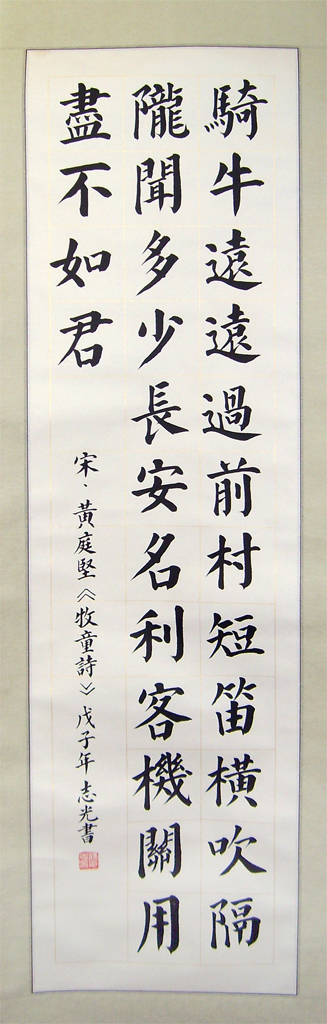 騎牛遠遠過前村短笛橫吹隔
隴聞多少長安名利客機關用
盡不如君
宋·黃庭堅《牧童詩》戊子年志光書